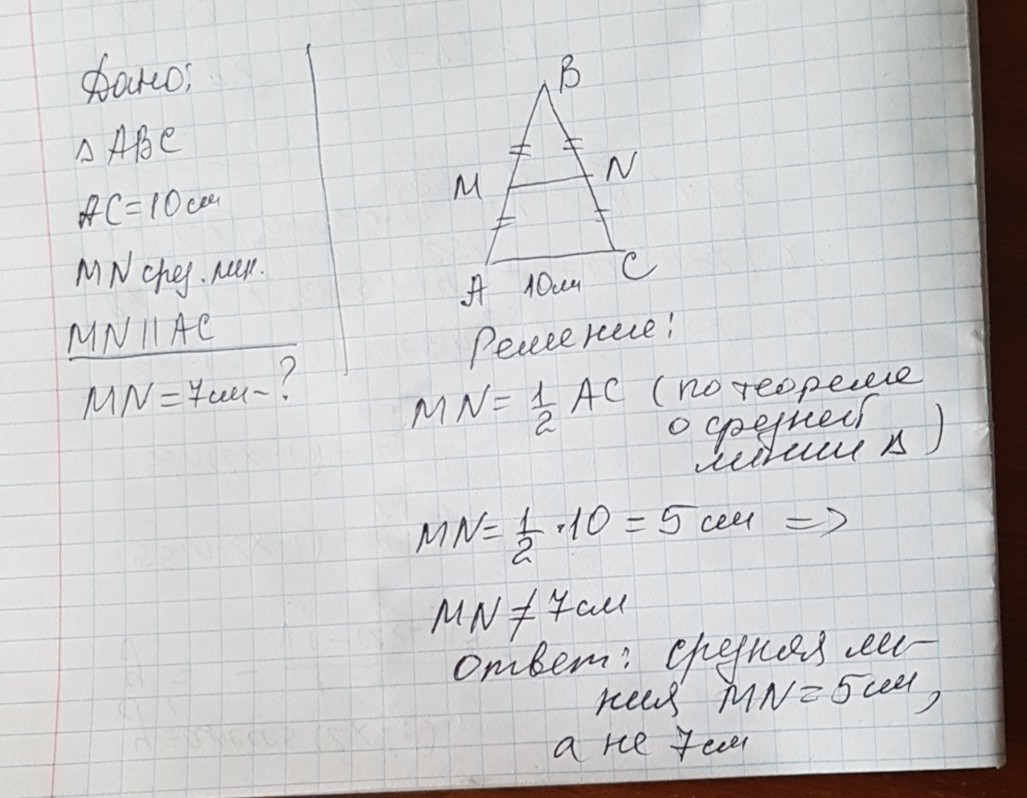 Дано:
△ ABC
AC=10см
MN сред. лин.
MN || AC
MN=7см-?
B
M
N
A
10см
C
Решение:
MN= 1/2 AC (по теореме
о средней
линии △)
MN= 1/2 ·10 = 5 см =>
MN ≠ 7см
Ответ: средняя ли-
ния MN=5см,
а не 7см